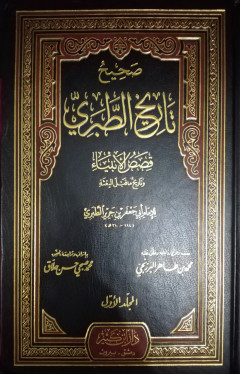 صحيح
تاريخ الطبري
قصص الأنبياء
وتاريخ ما قبل البعثة
للإمام أبي جعفر بن جرير الطبري
محمد بن طاهر البرزنجي
محمد صبحي حسن حلاق
المجلد الأول
دار ابن كثير
دمشق - بيروت